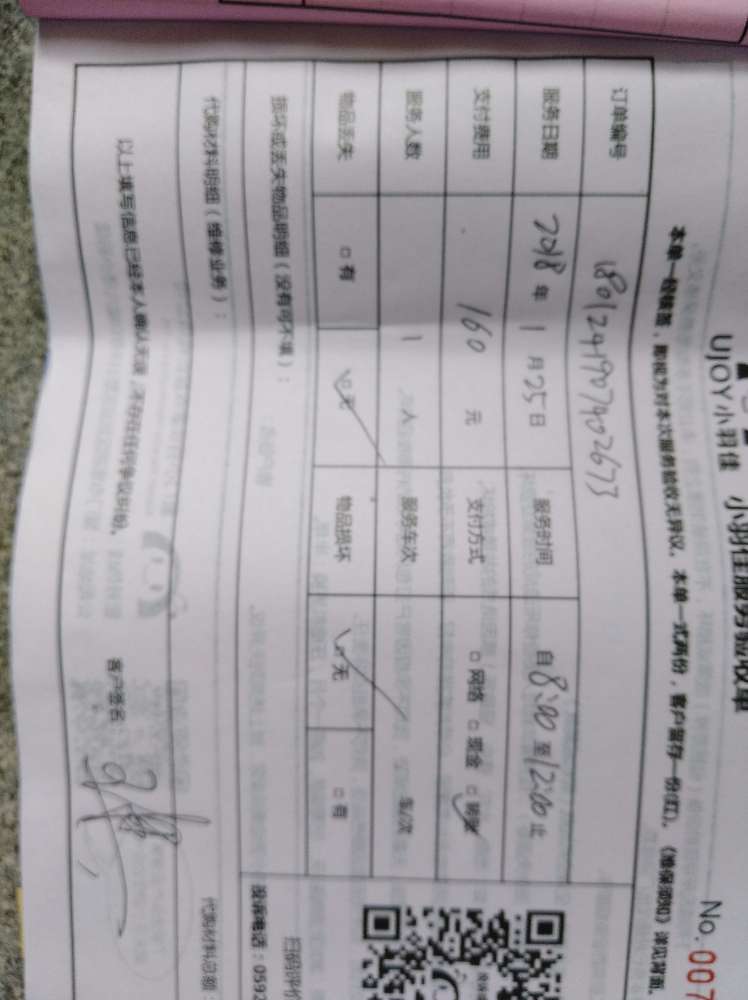 UJOY小羽佳 小羽佳服务验收单
No. 007
本单一经填签，即视为对本次服务验收无异议。本单一式两份，客户留存一份(红)。《维保须知》详见背面。
订单编号 1801241907402673
服务日期 2018年1月25日 服务时间 自8:00至12:00止
支付费用 160元 支付方式 □网络 □现金 □
服务人数 1人 服务车次 车/次
物品丢失 □有 □无 物品损坏 □无 □有
损坏或丢失物品明细（没有可不填）：
代购材料明细（维修业务）：
代购材料总额
以上填写信息已经本人确认无误，不存在任何争议纠纷。 客户签名：
扫码评价
投诉电话：0592